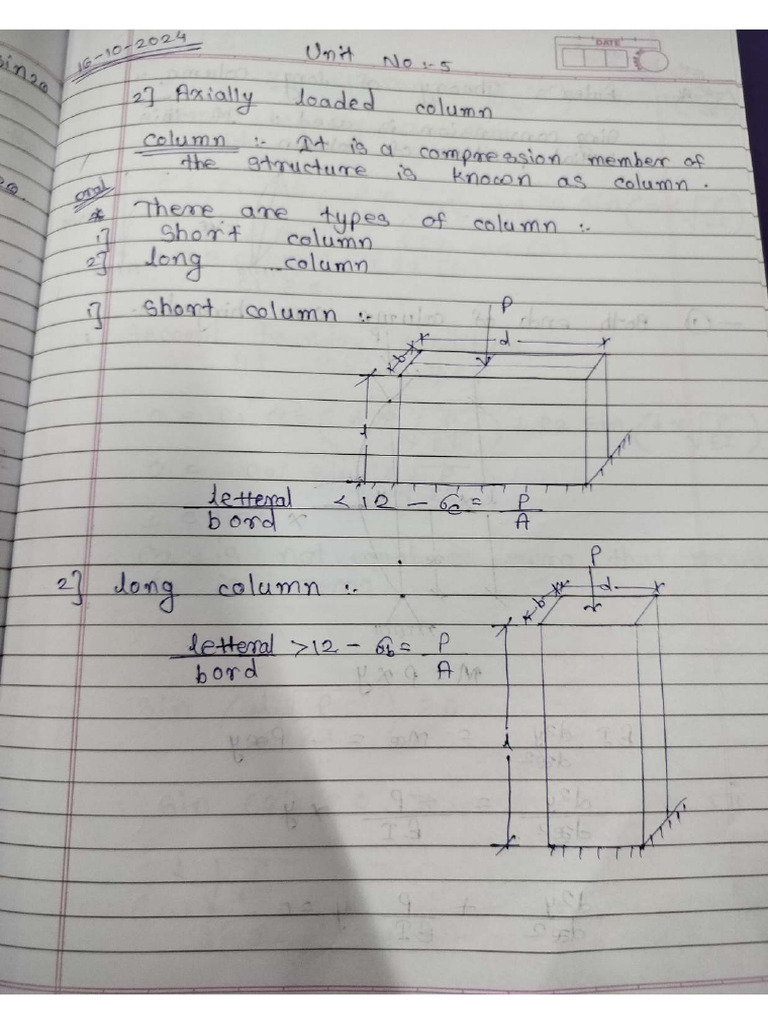 16-10-2024
Unit No:-5
DATE
2] Axially loaded column
column :- It is a compression member of
the structure is known as column.
oral
* There are types of column :-
1] Short column
2] long column
1] Short column :-
P
b d
l
letteral / bord < 12 - σc = P/A
2] long column :-
P
b d
letteral / bord > 12 - σb = P/A
l